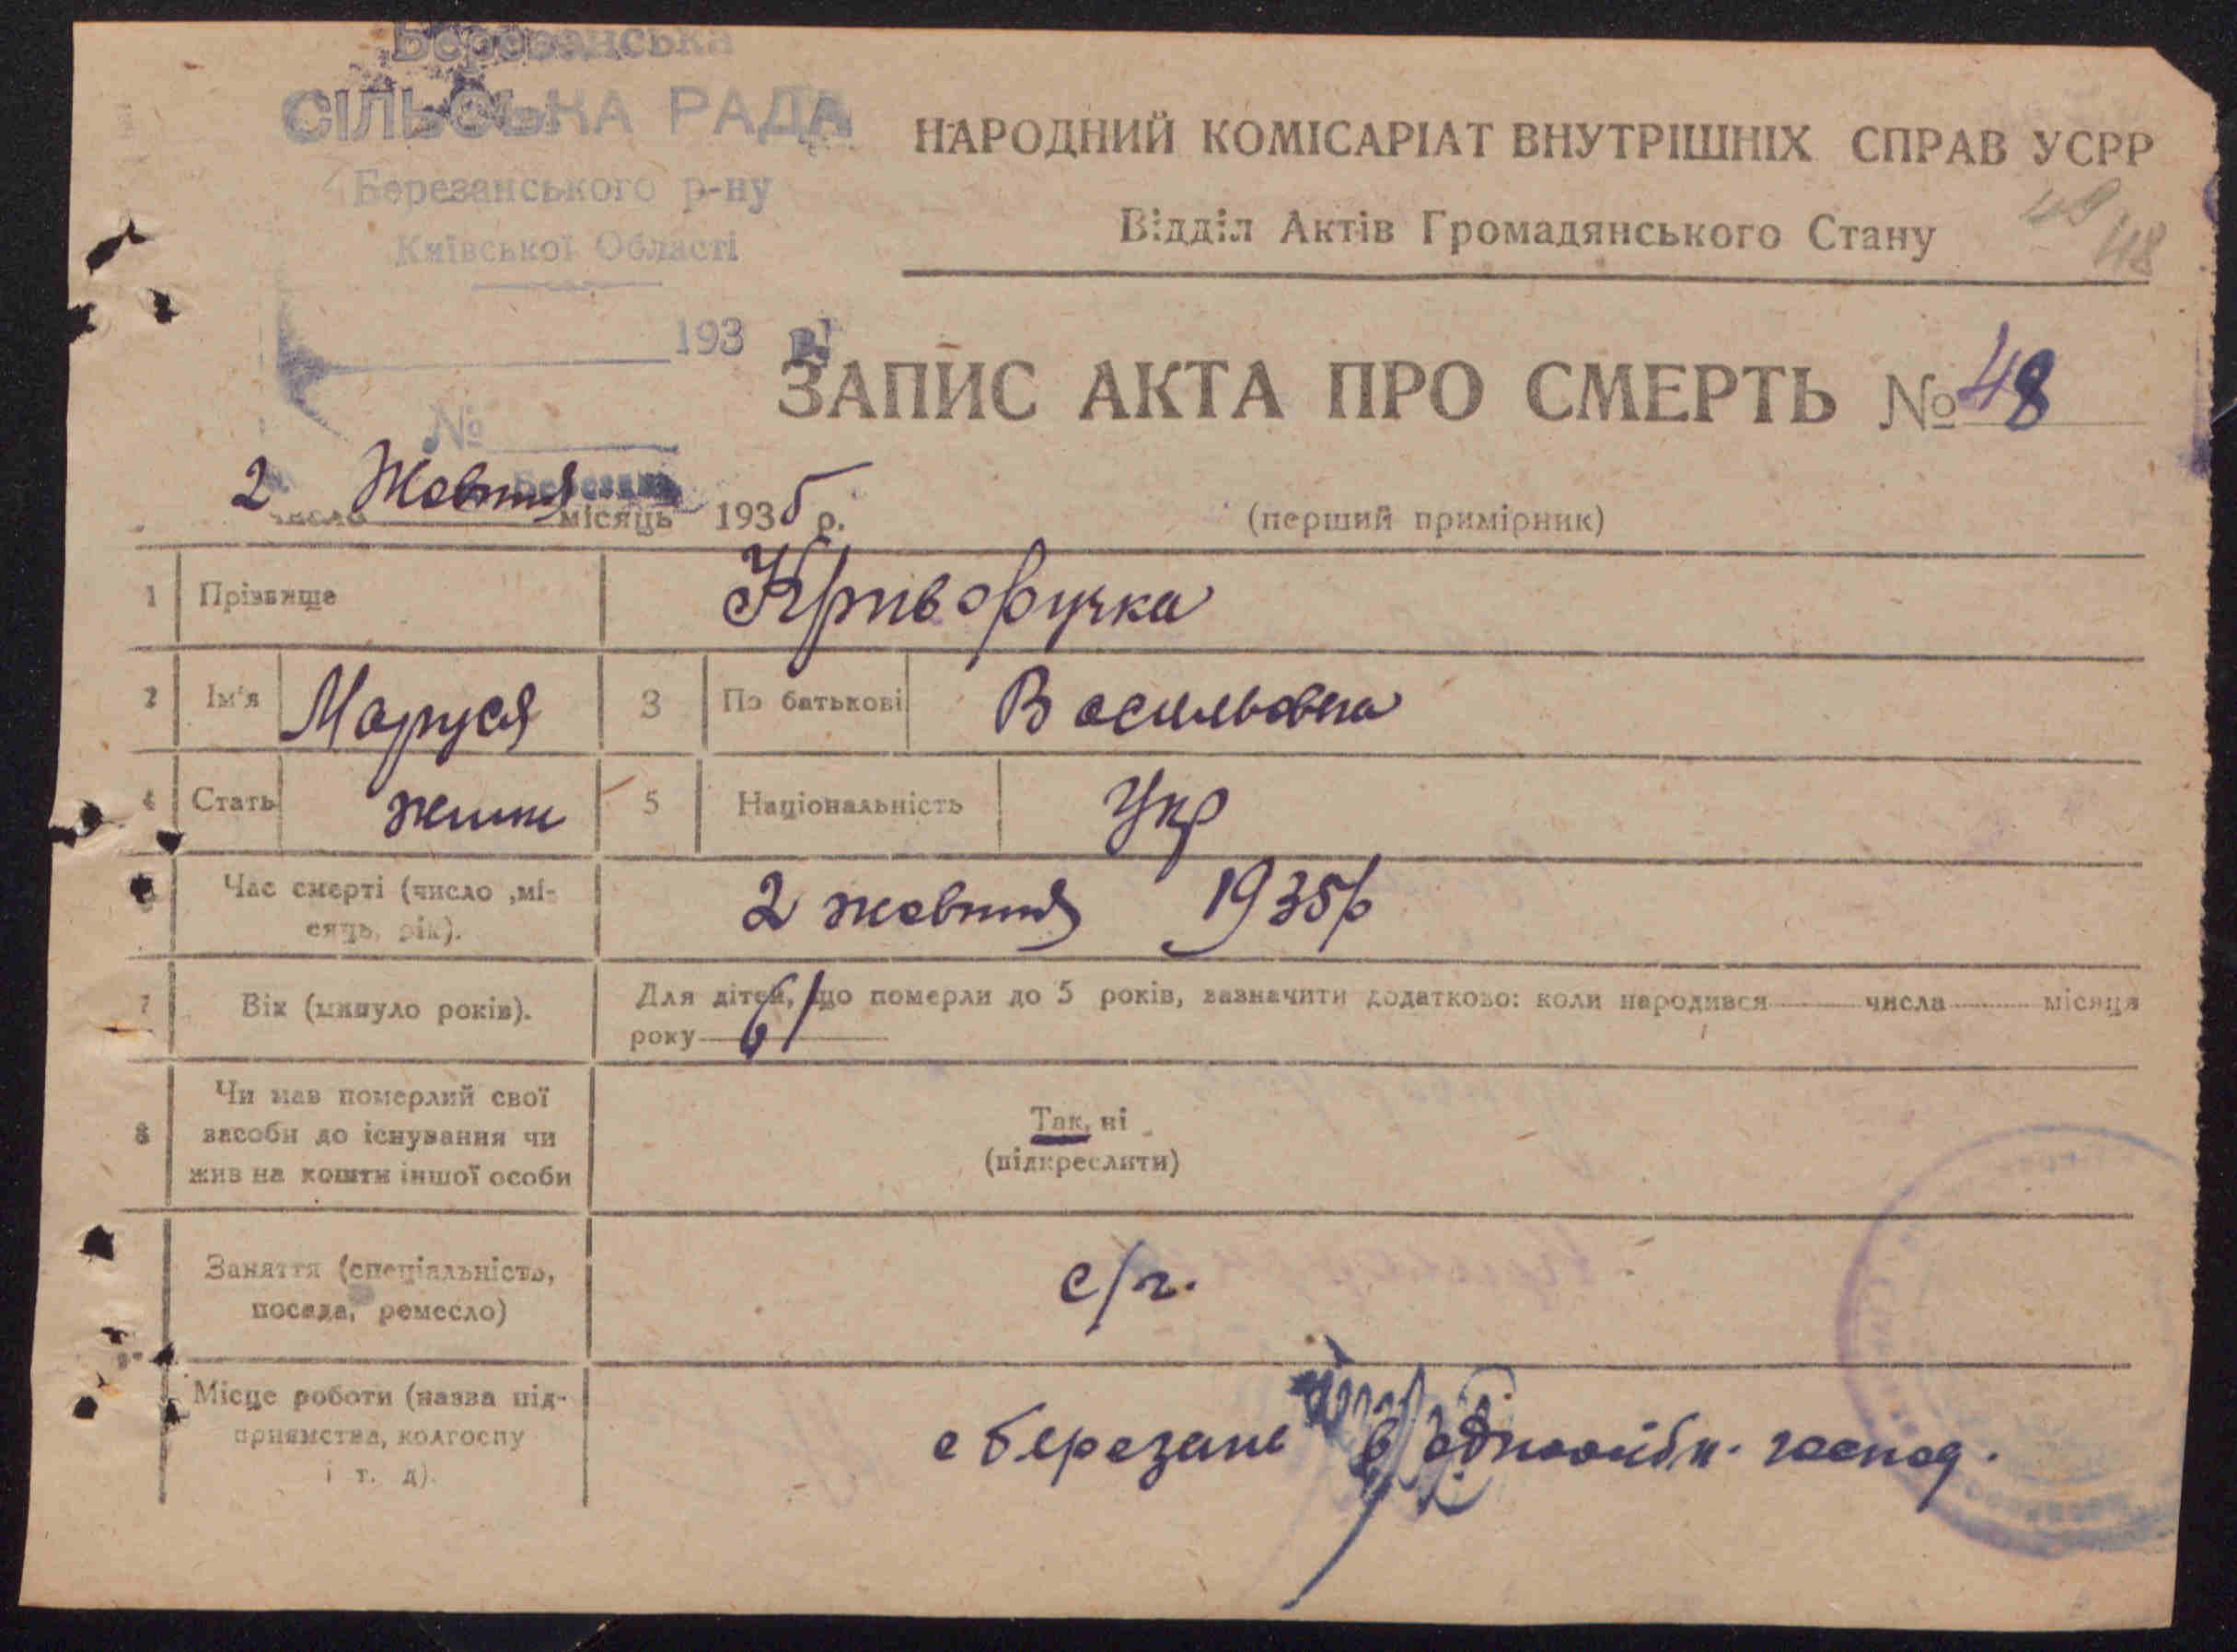 Березанська
СІЛЬСЬКА РАДА
Березанського р-ну
Київської Області
193 р.
№
НАРОДНИЙ КОМІСАРІАТ ВНУТРІШНІХ СПРАВ УСРР
Відділ Актів Громадянського Стану
49
48
ЗАПИС АКТА ПРО СМЕРТЬ № 48
2 Жовтня 1935 р.
число місяць
(перший примірник)
1 Прізвище Криворучка
2 Ім'я Маруся 3 По батькові Васильовна
4 Стать 5 Національність Укр
Час смерті (число ,мі-
сяць, рік). 2 жовтня 1935 р
7 Вік (минуло років). Для дітей, що померли до 5 років, зазначити додатково: коли народився числа місяця
року 61
8 Чи мав померлий свої
засоби до існування чи
жив на кошти іншої особи
Так, ні
(підкреслити)
Заняття (спеціальність,
посада, ремесло) с/г.
Місце роботи (назва під-
приємства, колгоспу
і т. д).
с березань в господ.